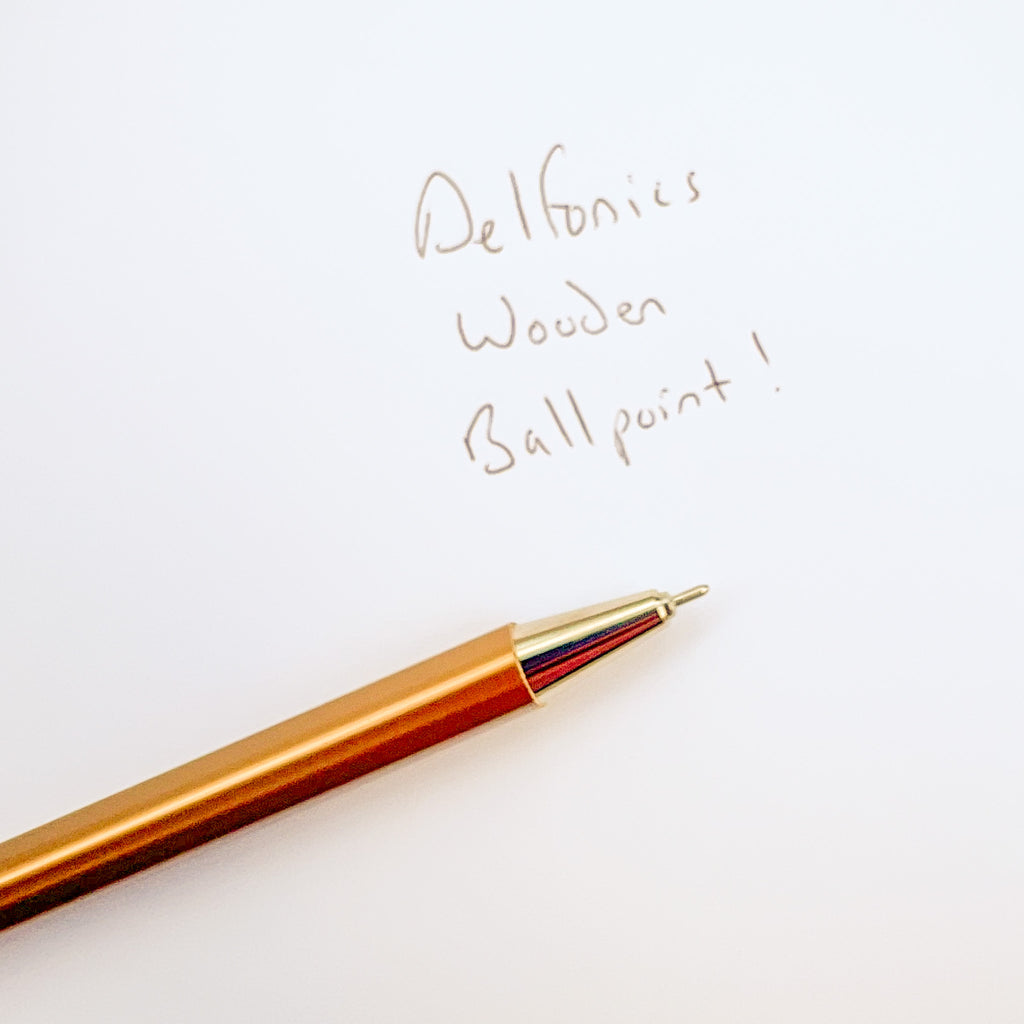 Delfonics
Wooden
Ballpoint!